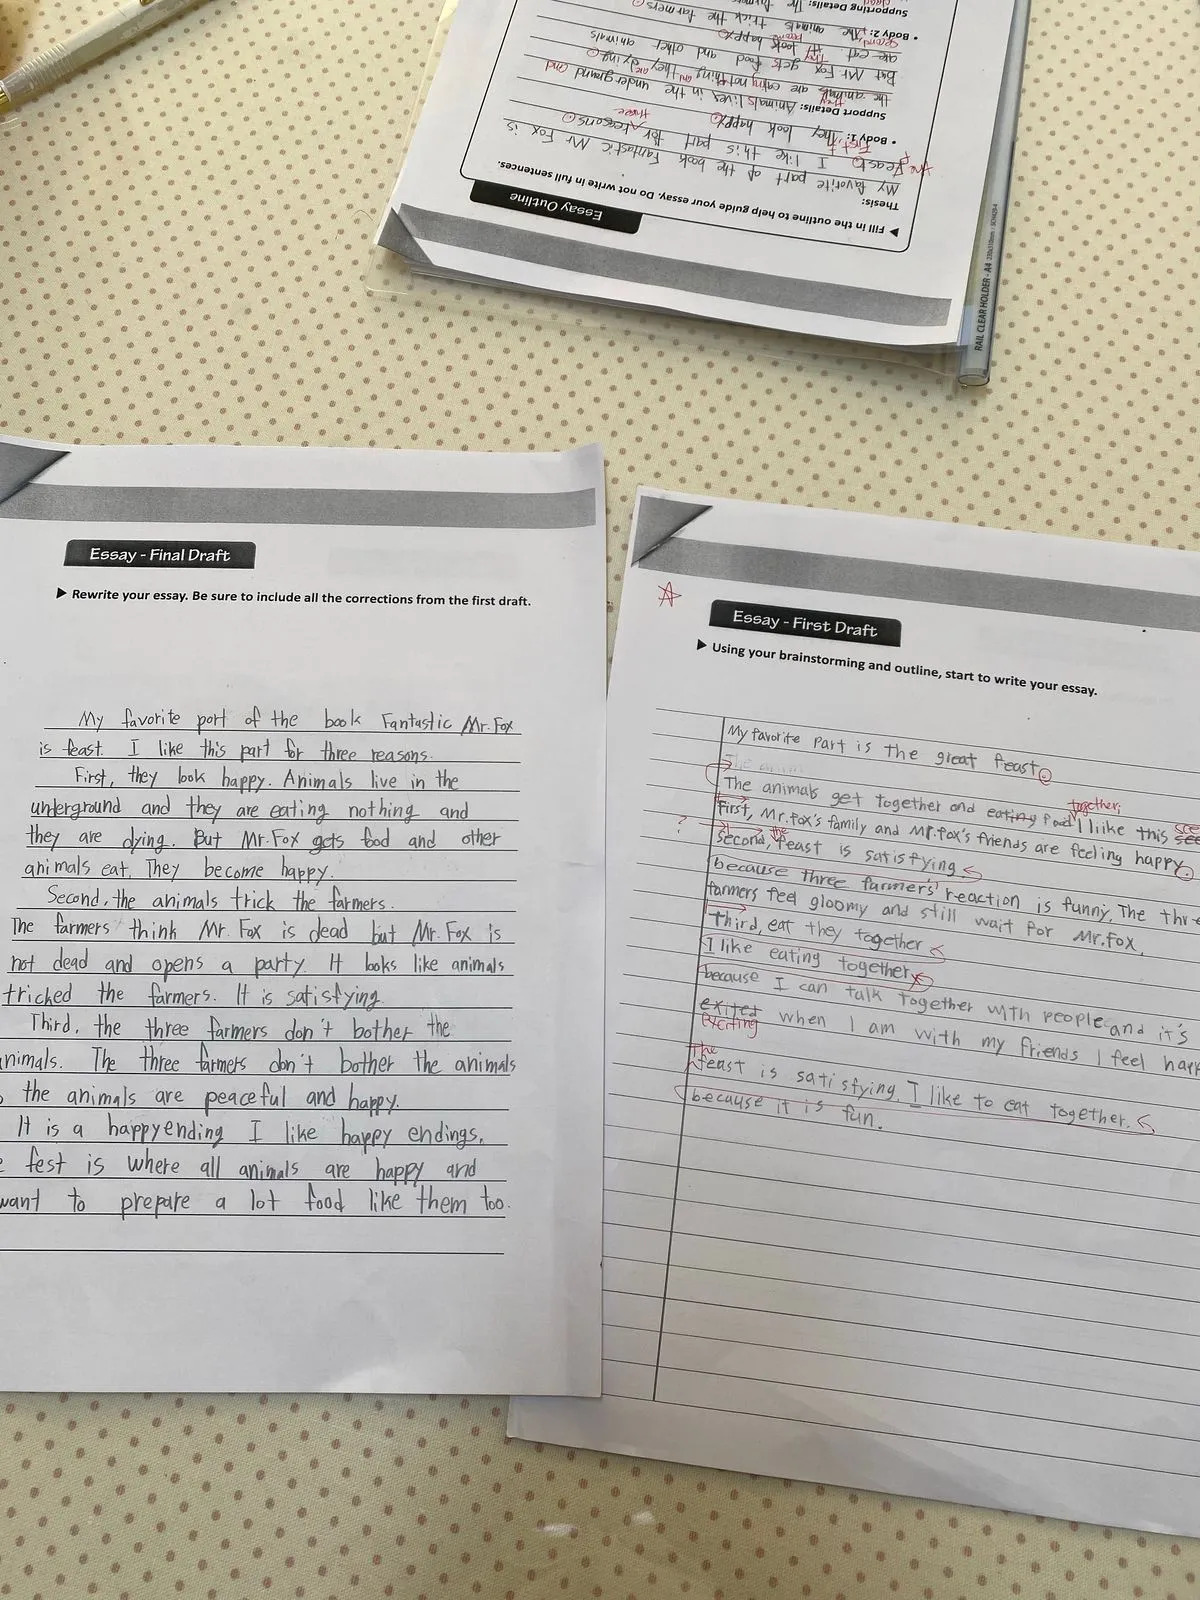 Essay Outline
Fill in the outline to help guide your essay. Do not write in full sentences.
Thesis:
My favorite part of the book Fantastic Mr Fox is
the feast. I like this part for three reasons.
• Body 1: First, They look happy.
Support Details: Animals lives in the underground and
the animals they are eating nothing and they are dying.
But Mr Fox gets food and other animals
are eat. They become look happy.
• Body 2: The animals trick the farmers.
second
Supporting Details: The farmers
RAIL CLEAR HOLDER - A4 220x310mm : SCH42S-4
Essay - Final Draft
Rewrite your essay. Be sure to include all the corrections from the first draft.
My favorite port of the book Fantastic Mr. Fox
is feast. I like this part for three reasons.
First, they look happy. Animals live in the
underground and they are eating nothing and
they are dying. But Mr. Fox gets food and other
animals eat. They become happy.
Second, the animals trick the farmers.
The farmers think Mr. Fox is dead but Mr. Fox is
not dead and opens a party. It looks like animals
tricked the farmers. It is satisfying.
Third, the three farmers don't bother the
animals. The three farmers don't bother the animals
the animals are peaceful and happy.
It is a happyending I like happy endings.
fest is where all animals are happy and
want to prepare a lot food like them too.
Essay - First Draft
Using your brainstorming and outline, start to write your essay.
My favorite part is the great feast.
The anim
together;
The animals get together and eating food I liike this see
First, Mr.fox's family and Mr.fox's friends are feeling happy.
? second, the feast is satisfying.
because three farmers' reaction is funny. The thre
farmers feel gloomy and still wait for Mr.Fox.
Third, eat they together
I like eating together
because I can talk together with people and it's
exited when I am with my friends I feel happ
exciting
The feast is satisfying. I like to eat together.
because it is fun.